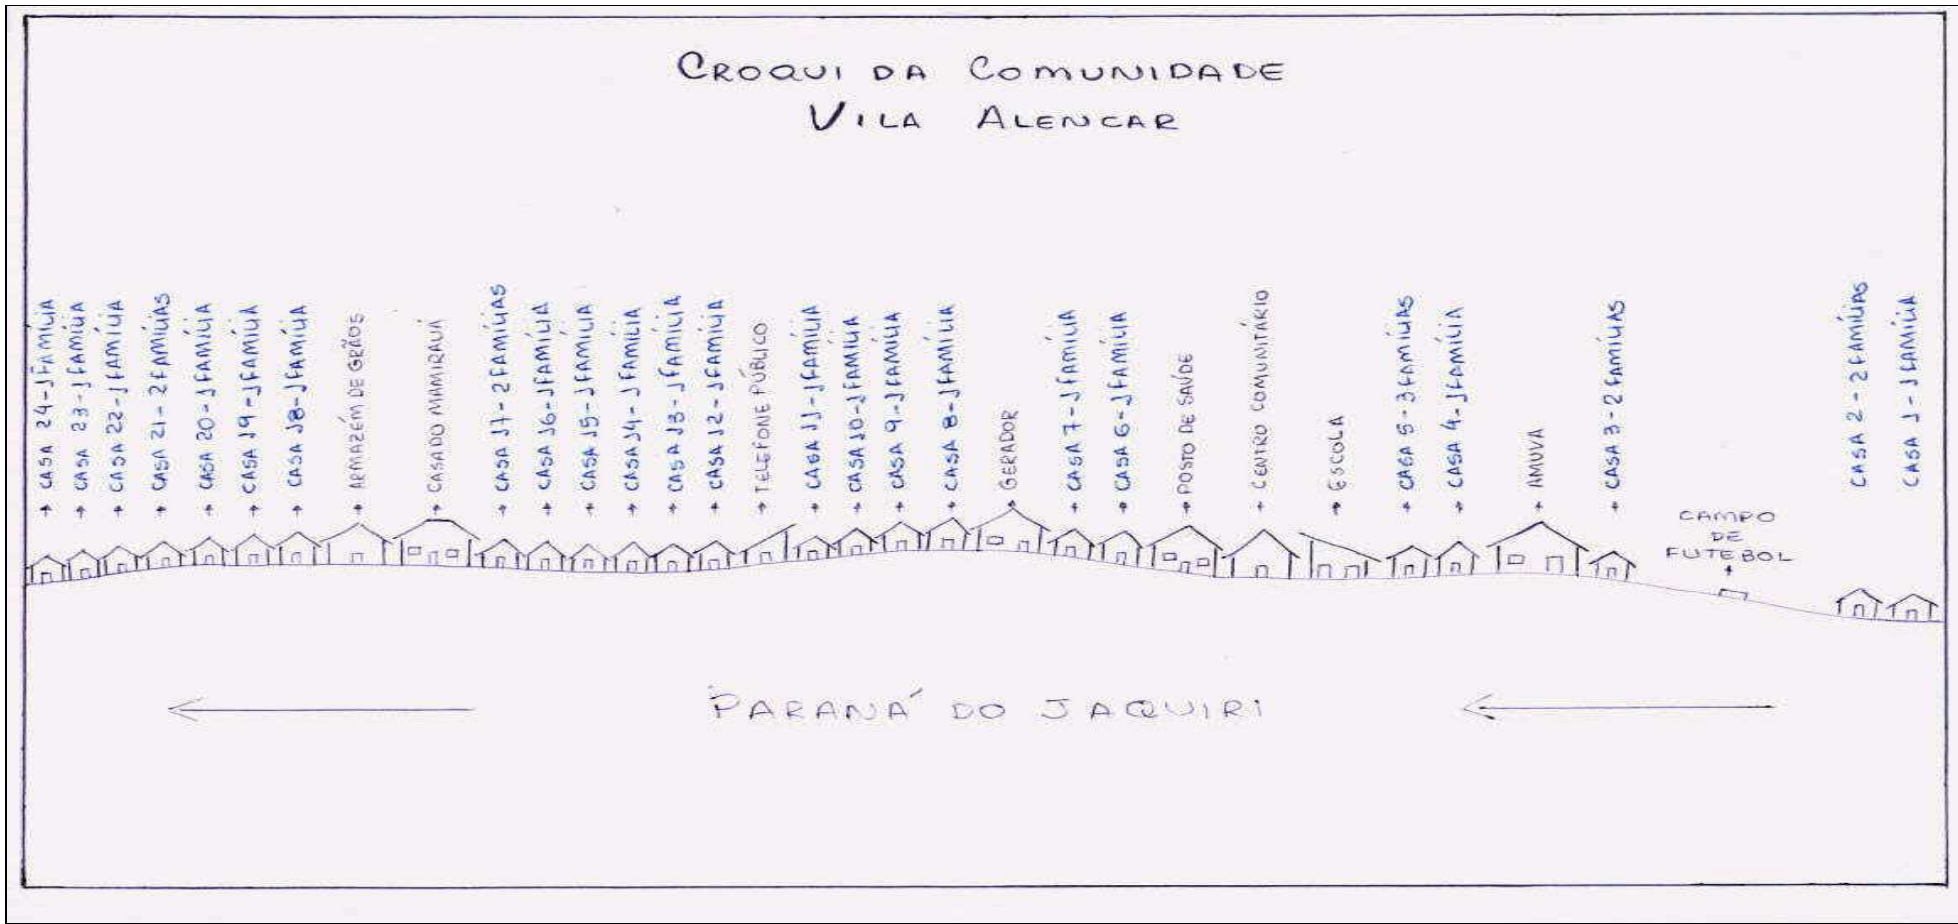 CROQUI DA COMUNIDADE
VILA ALENCAR
CASA 24-1 FAMÍLIA
CASA 23-1 FAMÍLIA
CASA 22-1 FAMÍLIA
CASA 21-2 FAMÍLIAS
CASA 20-1 FAMÍLIA
CASA 19-1 FAMÍLIA
CASA 18-1 FAMÍLIA
ARMAZÉM DE GRÃOS
CASA DO MAMIRAUÁ
CASA 17-2 FAMÍLIAS
CASA 16-1 FAMÍLIA
CASA 15-1 FAMÍLIA
CASA 14-1 FAMÍLIA
CASA 13-1 FAMÍLIA
CASA 12-1 FAMÍLIA
TELEFONE PÚBLICO
CASA 11-1 FAMÍLIA
CASA 10-1 FAMÍLIA
CASA 9-1 FAMÍLIA
CASA 8-1 FAMÍLIA
GERADOR
CASA 7-1 FAMÍLIA
CASA 6-1 FAMÍLIA
POSTO DE SAÚDE
CENTRO COMUNITÁRIO
ESCOLA
CASA 5-3 FAMÍLIAS
CASA 4-1 FAMÍLIA
AMUVA
CASA 3-2 FAMÍLIAS
CAMPO
DE
FUTEBOL
CASA 2-2 FAMÍLIAS
CASA 1-1 FAMÍLIA
PARANÁ DO JAQUIRI